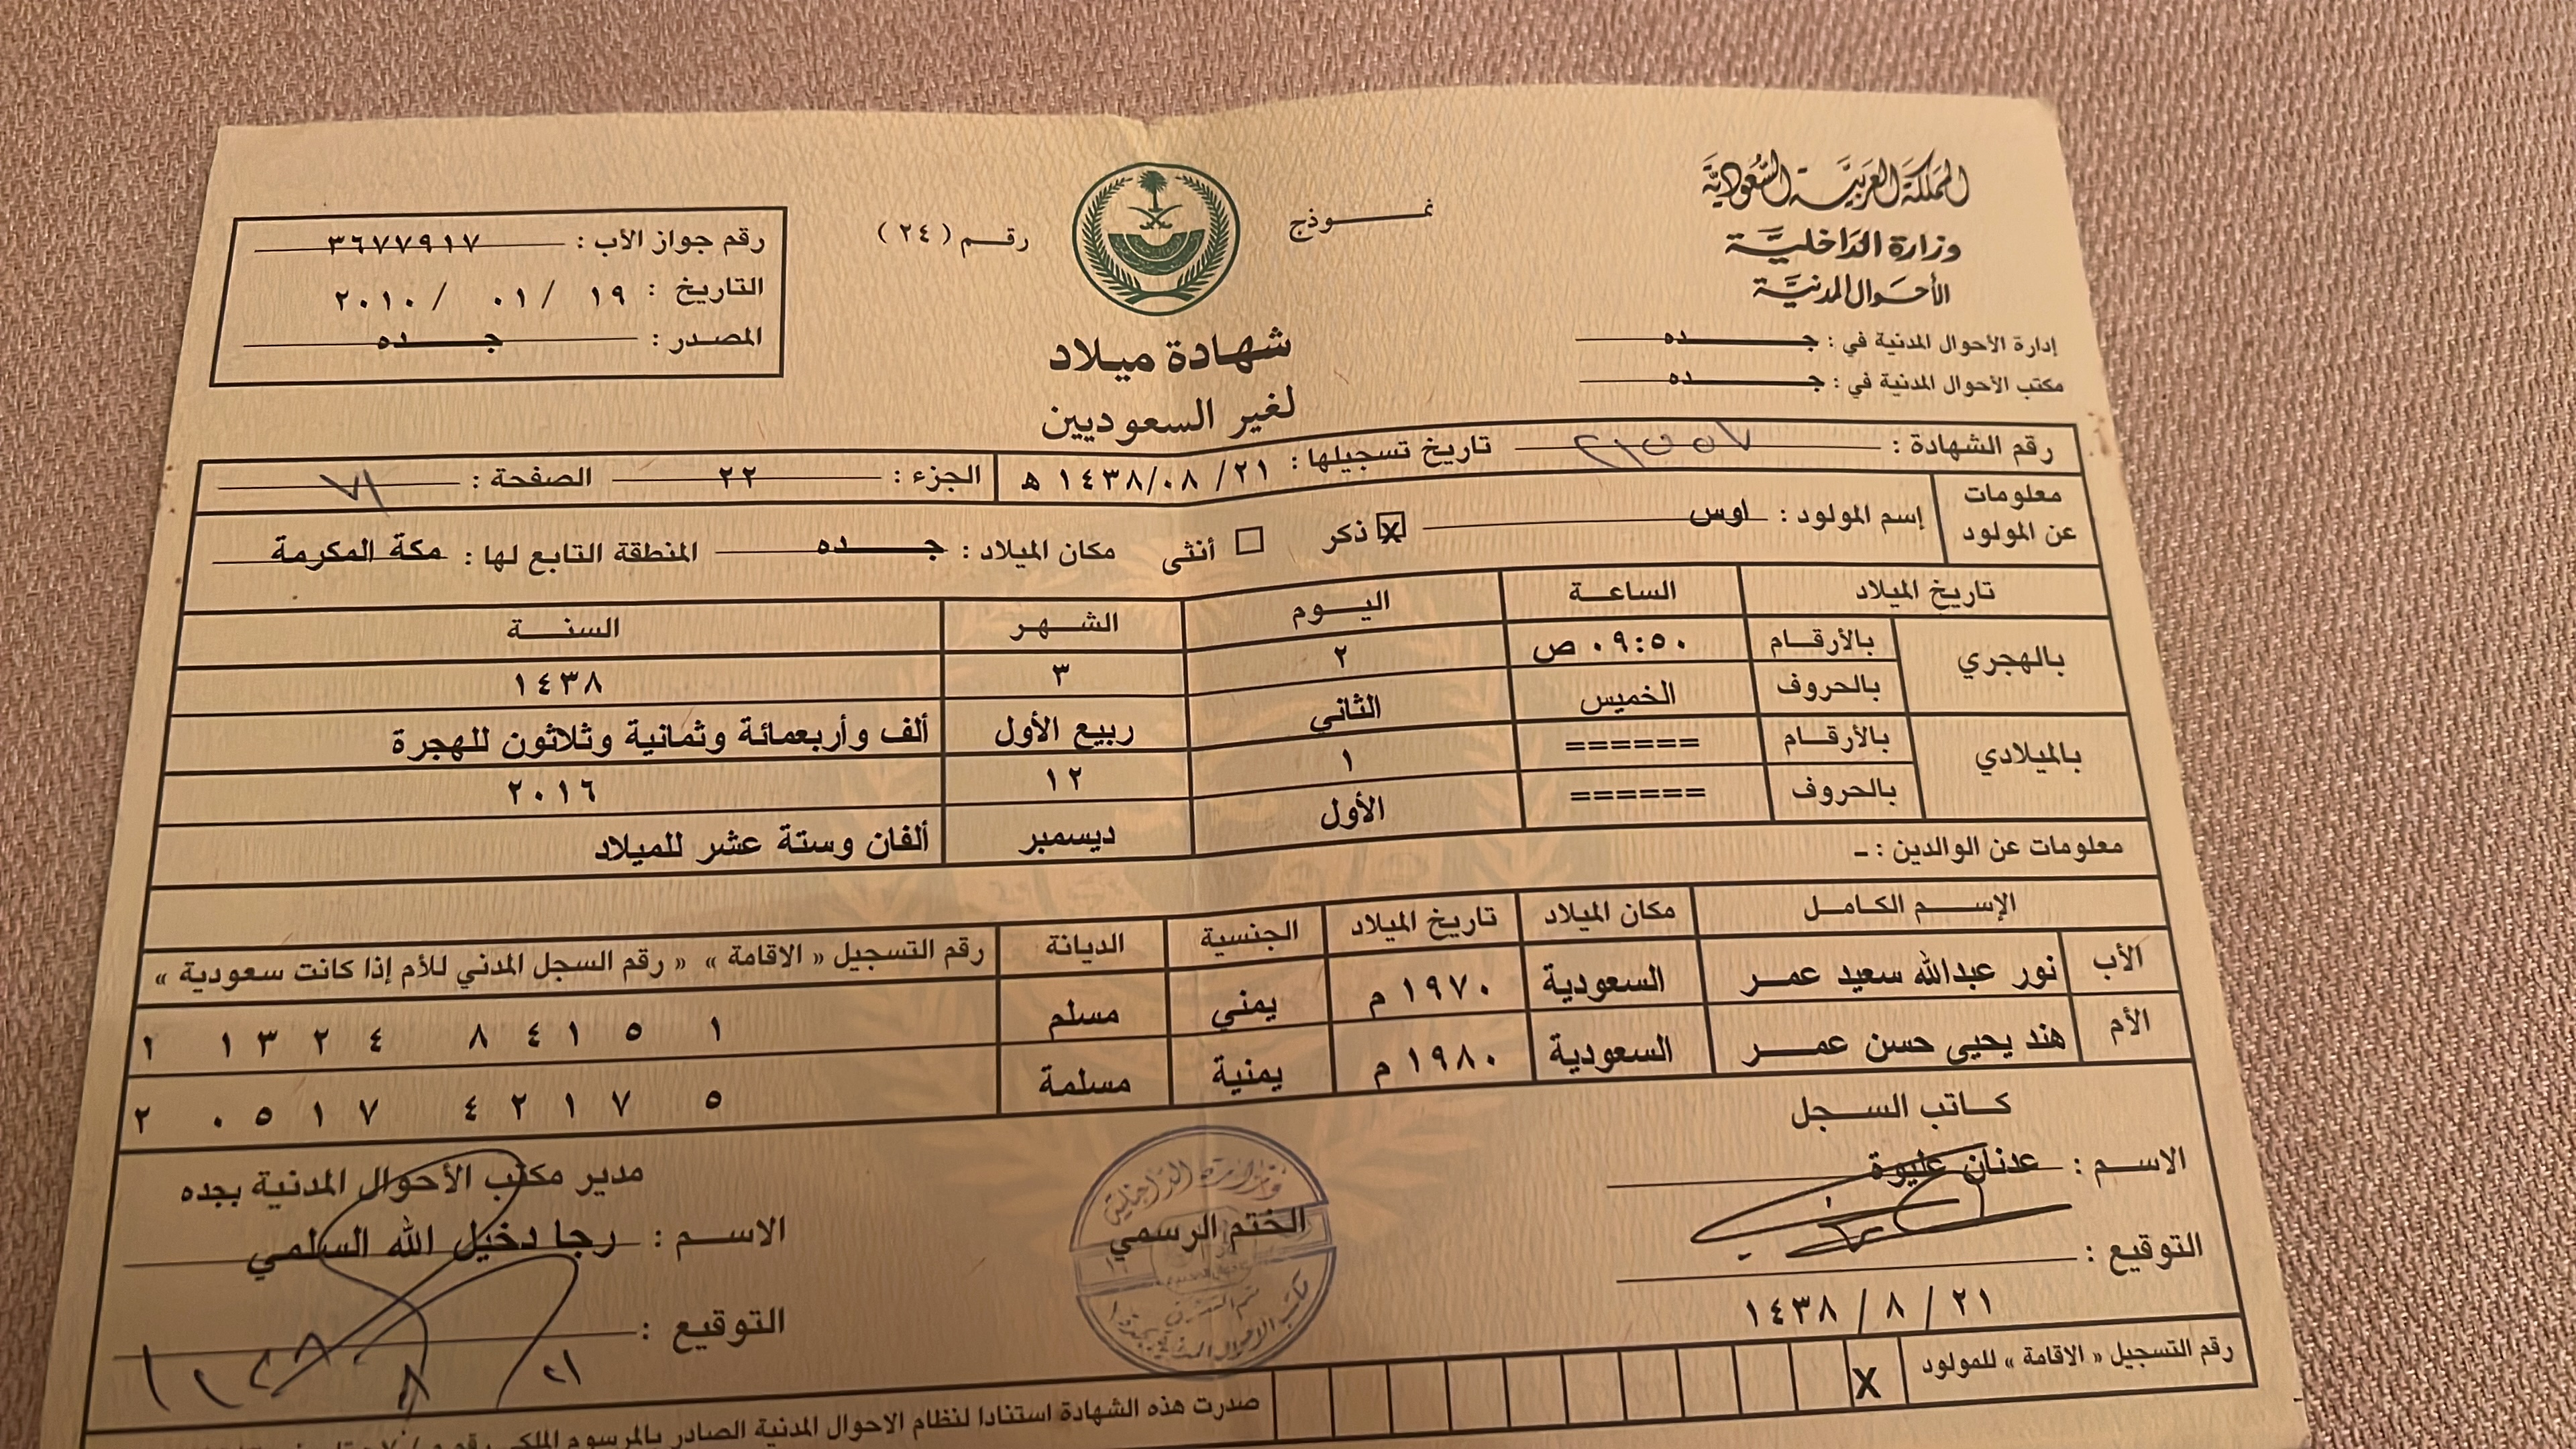 المملكة العربية السعودية
وزارة الداخلية
الأحوال المدنية
إدارة الأحوال المدنية في : جـــده
مكتب الأحوال المدنية في : جـــده
نمـــوذج
رقـم ( ٢٤ )
شهادة ميلاد
لغير السعوديين
رقم جواز الأب : ٣٦٧٧٩١٧
التاريخ : ١٩ / ٠١ / ٢٠١٠
المصدر : جـــده
رقم الشهادة : تاريخ تسجيلها : ٢١ / ٠٨ / ١٤٣٨ هـ الجزء : ٢٢ الصفحة : ٧١
معلومات عن المولود
إسم المولود : اوس ☒ ذكر ☐ أنثى مكان الميلاد : جـــده المنطقة التابع لها : مكة المكرمة
تاريخ الميلاد الساعـة اليـوم الشهـر السنـة
بالهجري بالأرقـام ٠٩:٥٠ ص ٢ ٣ ١٤٣٨
بالحروف الخميس الثاني ربيع الأول ألف وأربعمائة وثمانية وثلاثون للهجرة
بالميلادي بالأرقـام ====== ١ ١٢ ٢٠١٦
بالحروف ====== الأول ديسمبر ألفان وستة عشر للميلاد
معلومات عن الوالدين : ـ
الإسـم الكـامـل مكان الميلاد تاريخ الميلاد الجنسية الديانة رقم التسجيل « الاقامة » « رقم السجل المدني للأم إذا كانت سعودية »
الأب نور عبدالله سعيد عمـر السعودية ١٩٧٠ م يمني مسلم ١ ١ ٣ ٢ ٤ ٨ ٤ ١ ٥ ١
الأم هند يحيى حسن عمـر السعودية ١٩٨٠ م يمنية مسلمة ٢ ٠ ٥ ١ ٧ ٤ ٢ ١ ٧ ٥
كـاتب السـجل
الاسـم : عدنان عليوة
التوقيع :
٢١ / ٨ / ١٤٣٨
الختم الرسمي
مدير مكتب الأحوال المدنية بجده
الاسـم : رجا دخيل الله السلمي
التوقيع :
٢١ / ٨ / ١٤٣٨
رقم التسجيل « الاقامة » للمولود X
صدرت هذه الشهادة استنادا لنظام الاحوال المدنية الصادر بالمرسوم الملكي رقم م / ٧